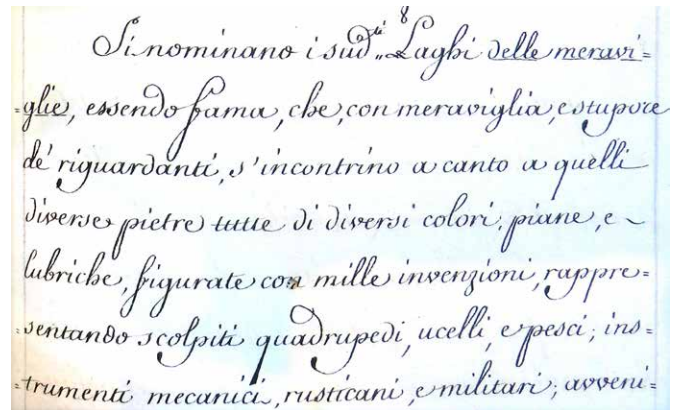 Si nominano i sud.ti 8 Laghi delle meravi=
=glie, essendo fama, che, con meraviglia, e stupore
de' riguardanti, s'incontrino a canto a quelli
diverse pietre tutte di diversi colori, piane, e
lubriche, figurate con mille invenzioni, rappre=
=sentando scolpiti quadrupedi, ucelli, e pesci; ins=
=trumenti mecanici, rusticani, e militari; avveni=